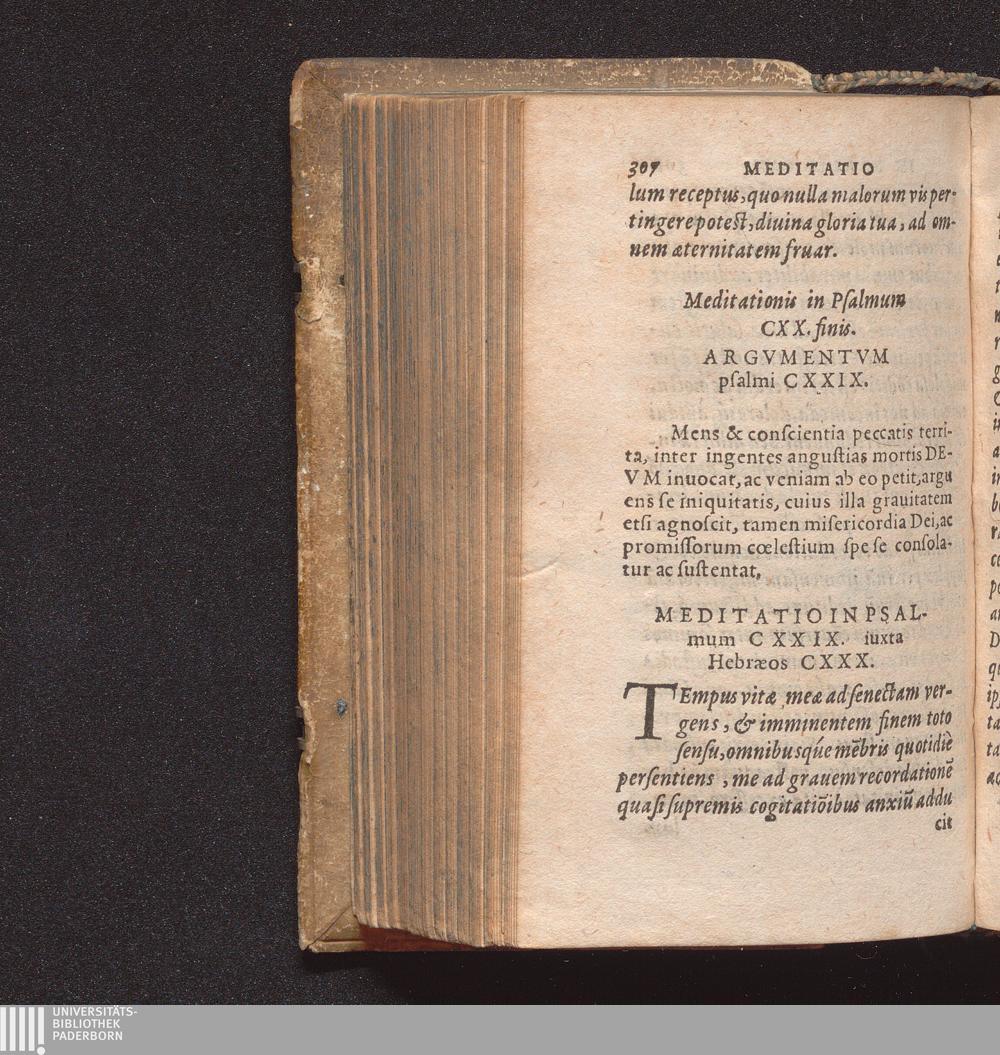 307 MEDITATIO
lum receptus, quo nulla malorum vis per-
tingere potest, diuina gloria tua, ad om-
nem æternitatem fruar.
Meditationis in Pſalmum
CXX. finis.
ARGVMENTVM
pſalmi CXXIX.
Mens & conſcientia peccatis terri-
ta, inter ingentes anguſtias mortis DE-
VM inuocat, ac veniam ab eo petit, argu
ens ſe iniquitatis, cuius illa grauitatem
etſi agnoſcit, tamen miſericordia Dei, ac
promiſſorum cœleſtium ſpe ſe conſola-
tur ac ſuſtentat.
MEDITATIO IN PSAL-
mum CXXIX. iuxta
Hebræos CXXX.
TEmpus vitæ meæ ad ſenectam ver-
gens, & imminentem finem toto
ſenſu, omnibusq́ue mēbris quotidiè
perſentiens, me ad grauem recordationē
quaſi ſupremis cogitatiōibus anxiū addu
cit
UNIVERSITÄTS-
BIBLIOTHEK
PADERBORN